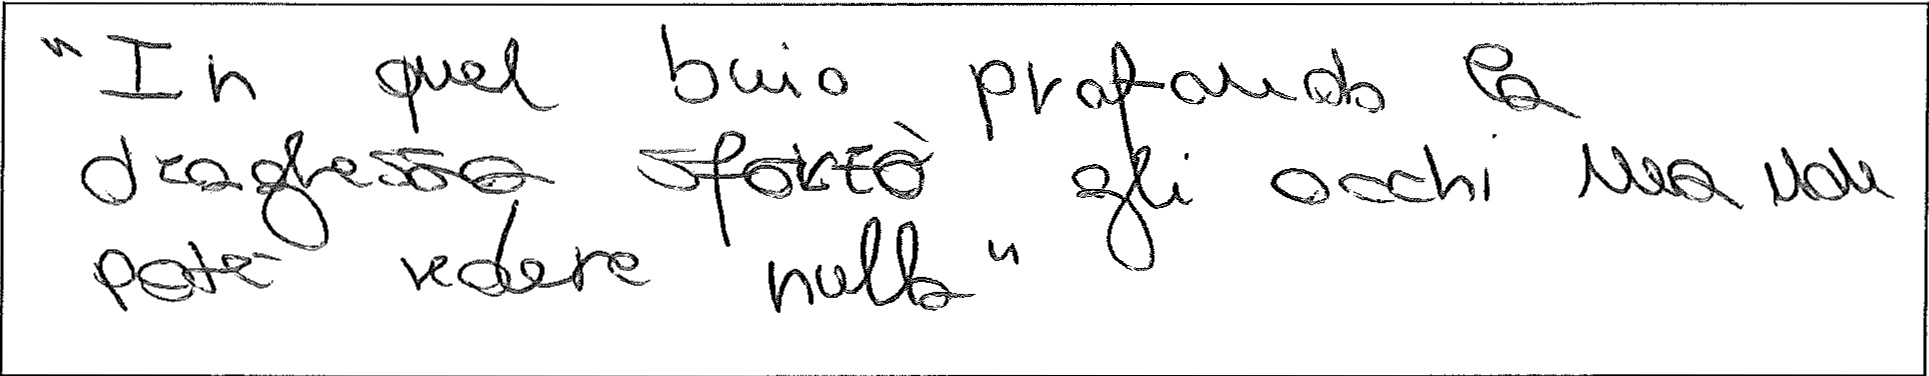 "In quel buio profondo la
draghessa sfortò gli occhi ma non
poté vedere nulla"